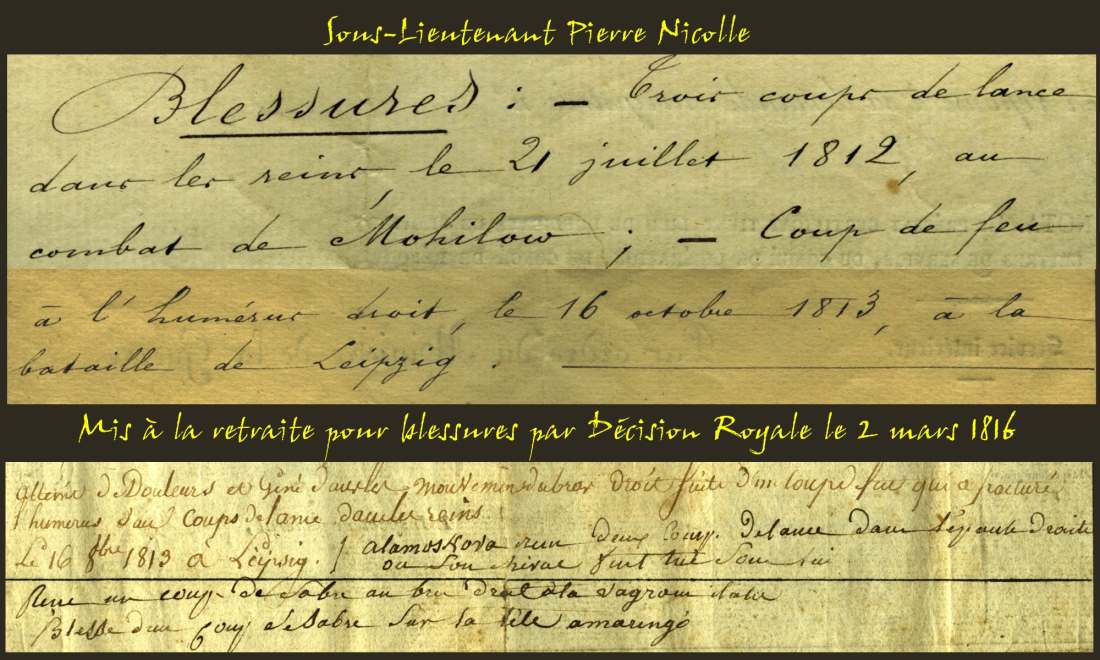 Sous-Lieutenant Pierre Nicolle
Blessures : — Trois coups de lance
dans les reins, le 21 juillet 1812, au
combat de Mohilow ; — Coup de feu
à l'humérus droit, le 16 octobre 1813, à la
bataille de Leipzig .
Mis à la retraite pour blessures par Décision Royale le 2 mars 1816
atteint de Douleurs et Gêné dans les mouvemens du bras Droit suite d'un Coup de feu qui a fracturé
l'humerus d'un Coups de lance dans les reins
Le 16 8bre 1813 a Leipsig. alamoskova deux Coup. De lance dans L'épaule droite
ou Son cheval fut tué Sous lui
un coup de Sabre au bra droit a la vagram
Blessé d'un Coup de Sabre Sur la tête amaringo